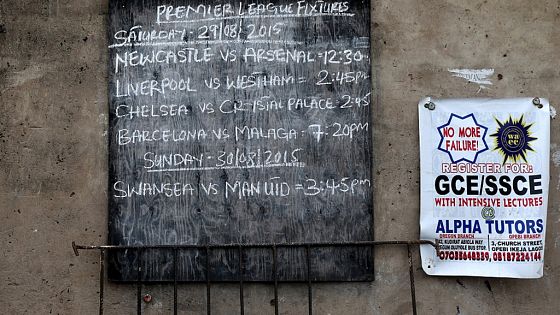 PREMIER LEAGUE FIXTURES
SATURDAY - 29/08/2015
NEWCASTLE VS ARSENAL = 12:30
LIVERPOOL VS WESTHAM = 2:45PM
CHELSEA VS CRYSTAL PALACE 2:45
BARCELONA VS MALAGA = 7.20PM
SUNDAY - 30/08/2015
SWANSEA VS MAN UTD = 3:45PM
NO MORE
FAILURE!
REGISTER FOR:
GCE/SSCE
WITH INTENSIVE LECTURES
ALPHA TUTORS
OREGUN BRANCH
KUDIRAT ABIOLA WAY
BUS STOP
OPEBI BRANCH
3, CHURCH STREET,
OPEBI IKEJA LAGOS
07035648339, 08187224144